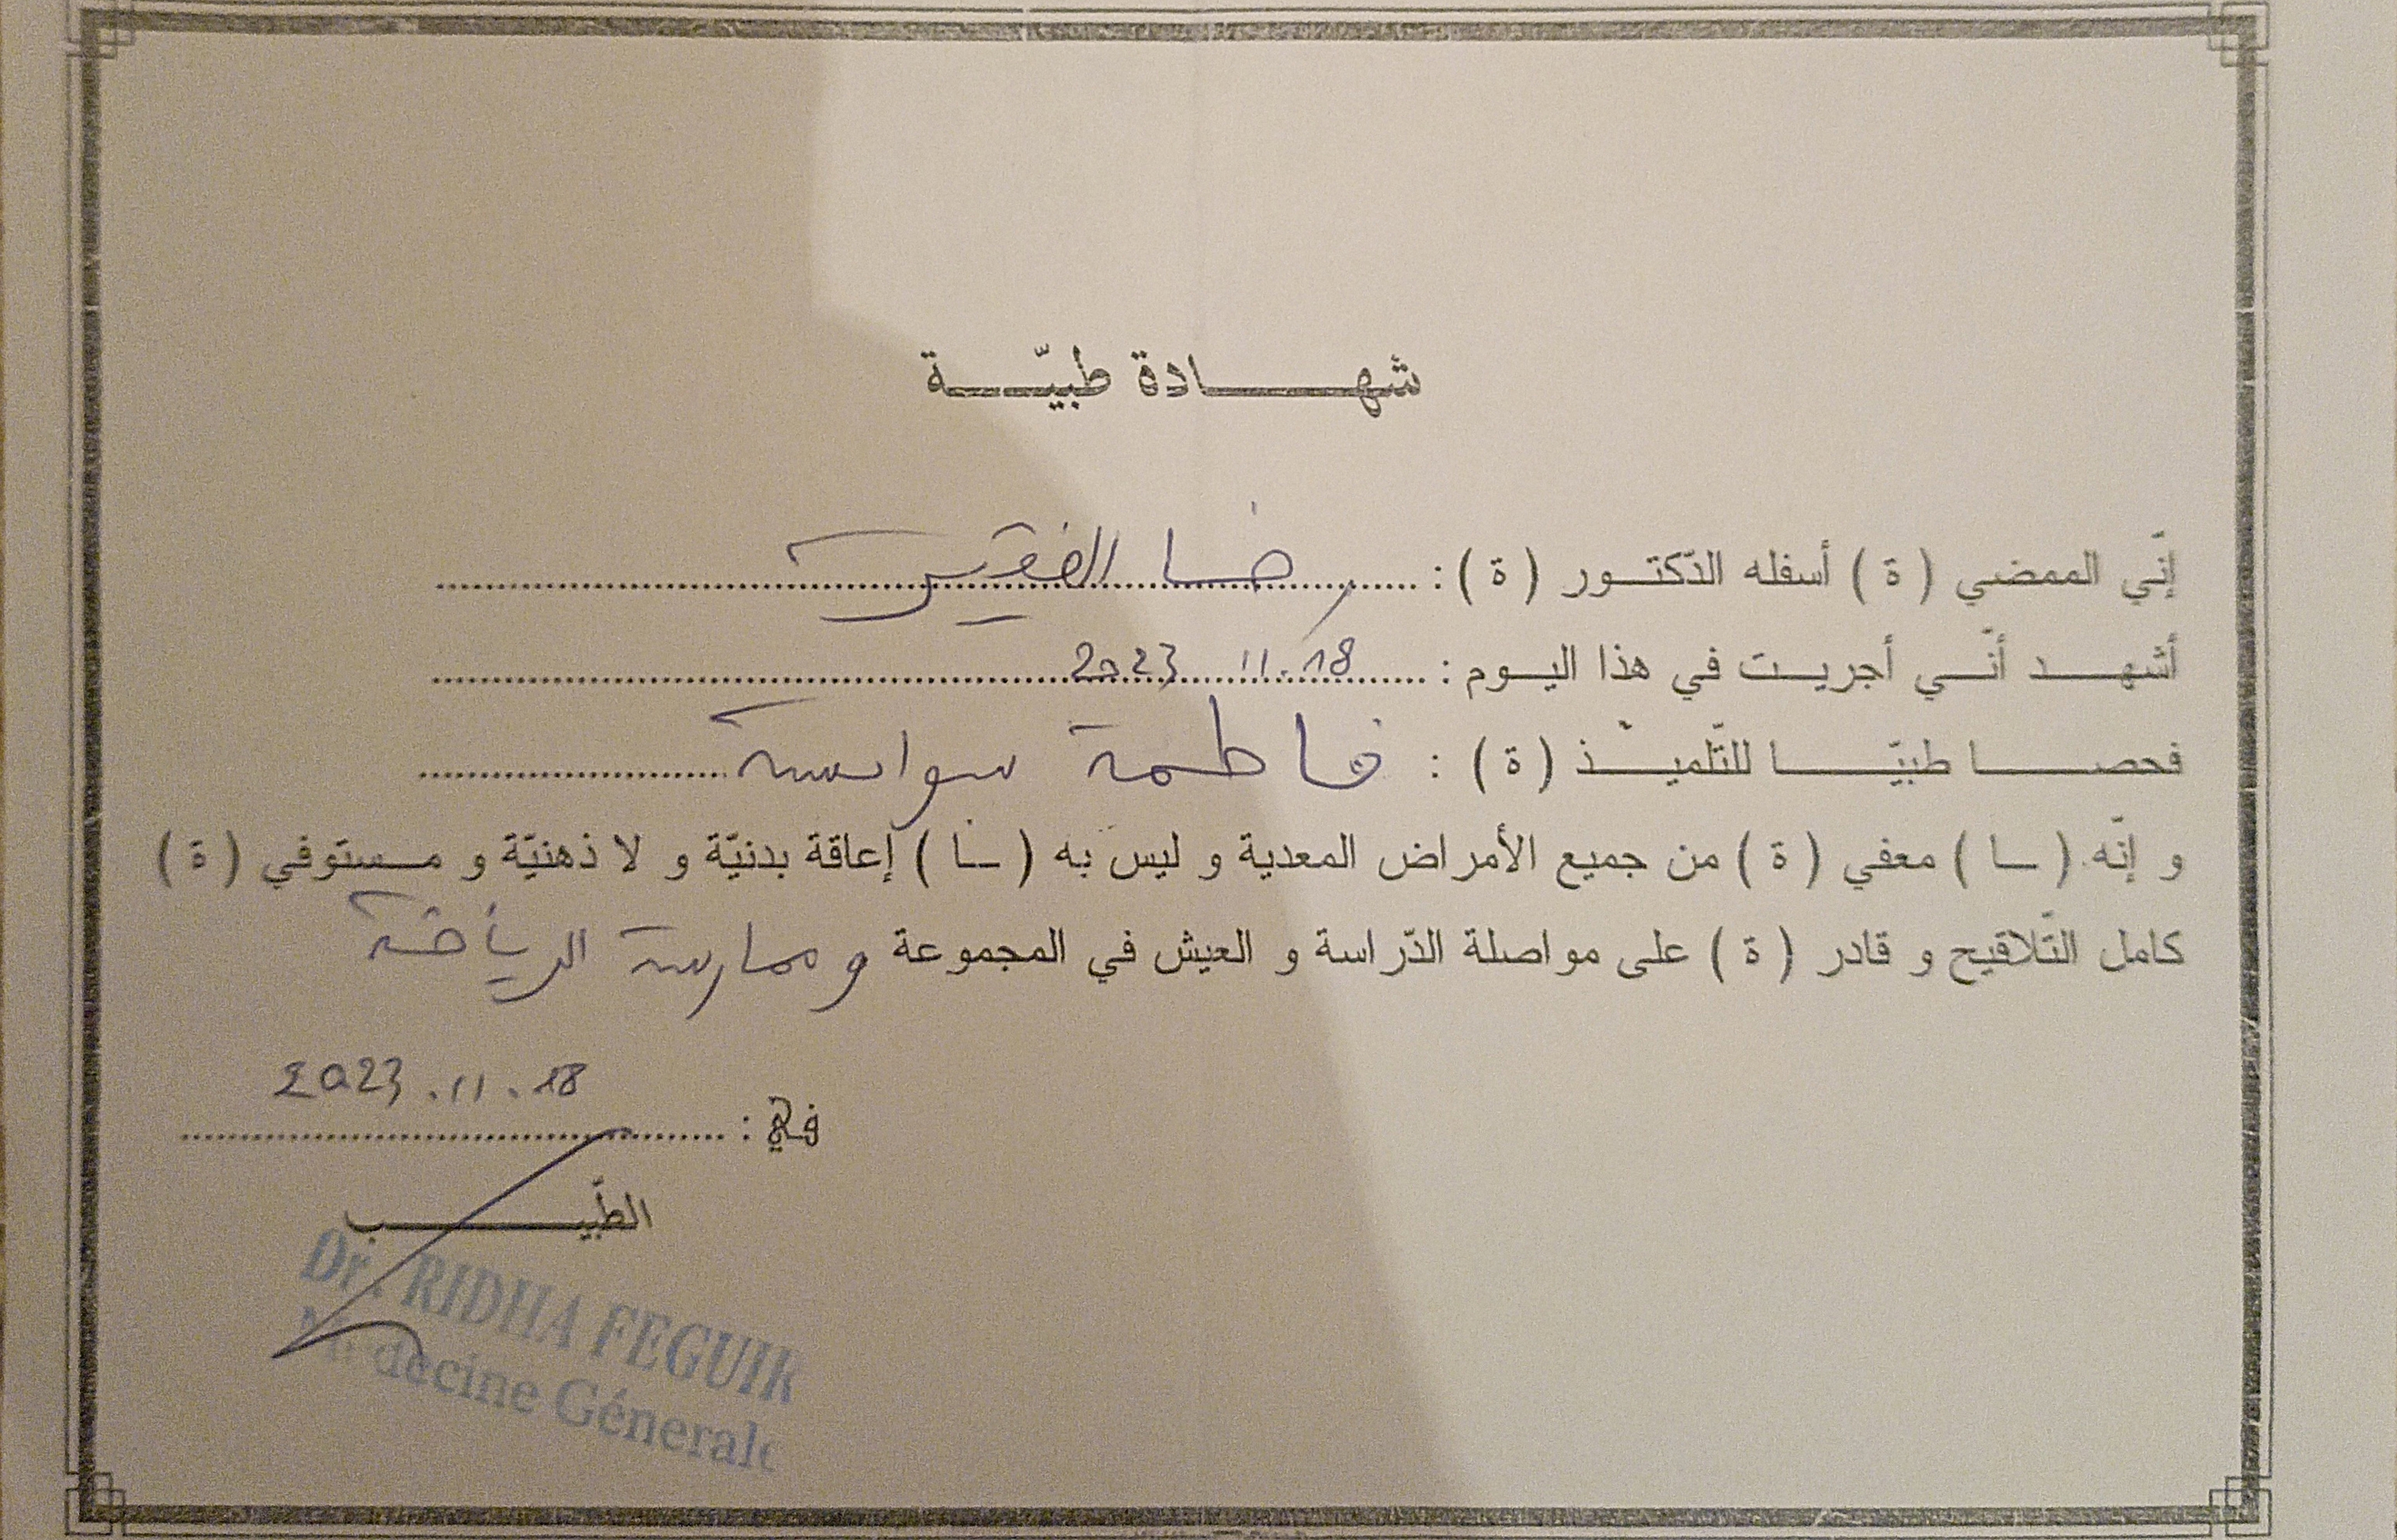 شهادة طبيّة
إنّي الممضي ( ة ) أسفله الدّكتور ( ة ) : رضا الفقير
أشهد أنّي أجريت في هذا اليوم : 2023 .11. 18
فحصا طبيّا للتّلميذ ( ة ) : فاطمة سوايسية
و إنّه ( ـا ) معفي ( ة ) من جميع الأمراض المعدية و ليس به ( ـا ) إعاقة بدنيّة و لا ذهنيّة و مستوفي ( ة )
كامل التّلاقيح و قادر ( ة ) على مواصلة الدّراسة و العيش في المجموعة وممارسة الرياضة
في : 2023 . 11 . 18
الطّبيب
Dr. RIDHA FEGUIR
Médecine Génerale